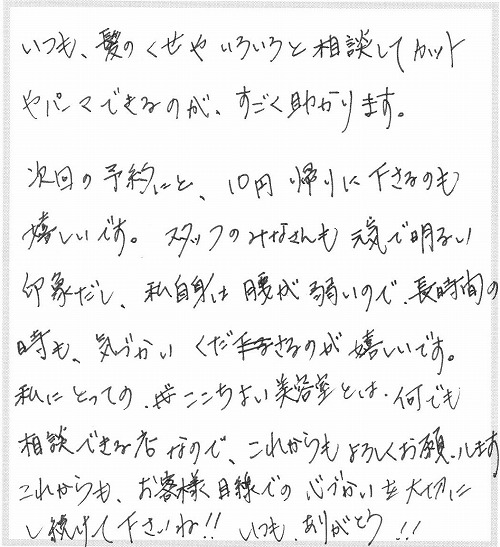 いつも、髪のくせやいろいろと相談してカット
やパーマできるのが、すごく助かります。
次回の予約にと、10円帰りに下さるのも
嬉しいです。スタッフのみなさんも元気で明るい
印象だし、私自身は腰が弱いので、長時間の
時も、気づかいくださるのが嬉しいです。
私にとっての、ここちよい美容室とは、何でも
相談できる店なので、これからもよろしくお願いします
これからも、お客様目線での心づかいを大切に
し続けて下さいね!! いつも、ありがとう!!